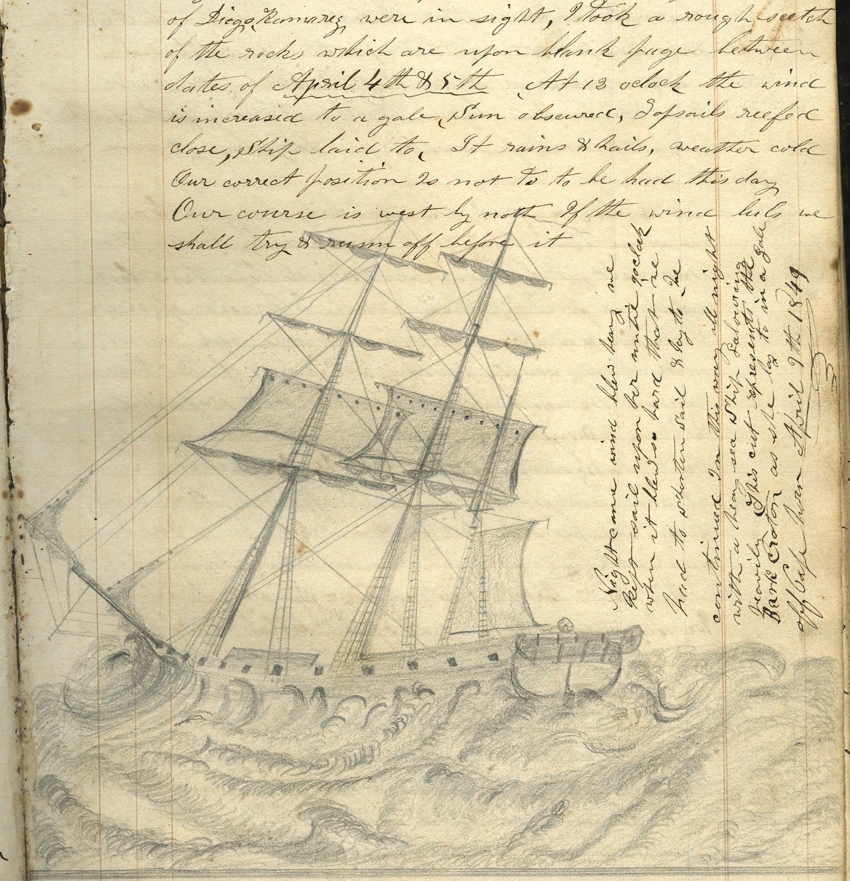 of Diego Ramarez were in sight, I took a rough scetch
of the rocks which are upon blank page between
dates of April 4th & 5th At 12 oclock the wind
is increased to a gale, Sun obscured, Topsails reefed
close, Ship laid to, It rains & hails, weather cold
Our correct position Is not to to be had this day
Our course is west by noth If the wind luls we
shall try & runn off before it
Night came wind blew heavy we
kept sail upon her until 9oclock
when it blew so hard that we
had to shorten sail & lay to We
continued In this way all night
with a heavy sea Ship labouring
heavily This cut represents the
Bark Croton as she lay to in a gale
off Cape horn April 9th 1849